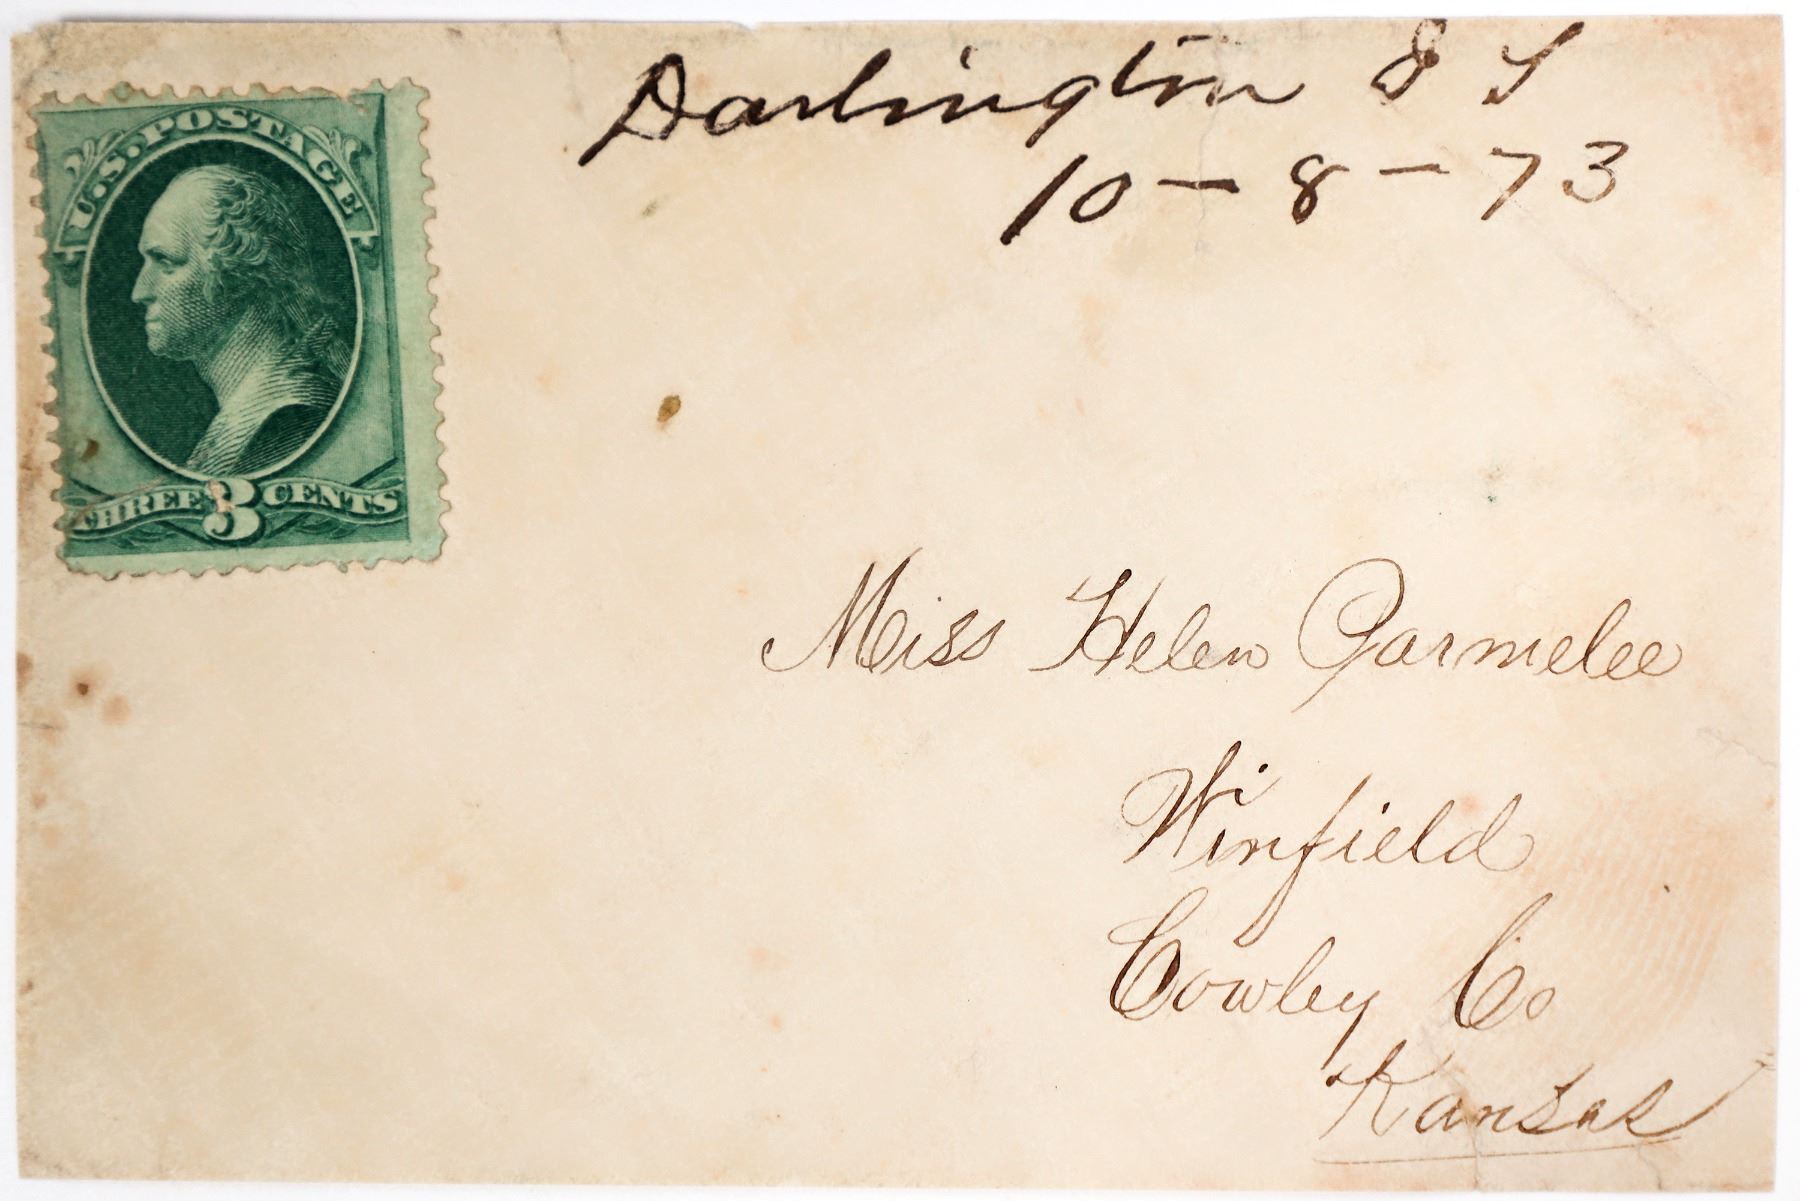 Darlington I T
10 - 8 - 73
U.S. POSTAGE
THREE 3 CENTS
Miss Helen Parmelee
Winfield
Cowley Co
Kansas